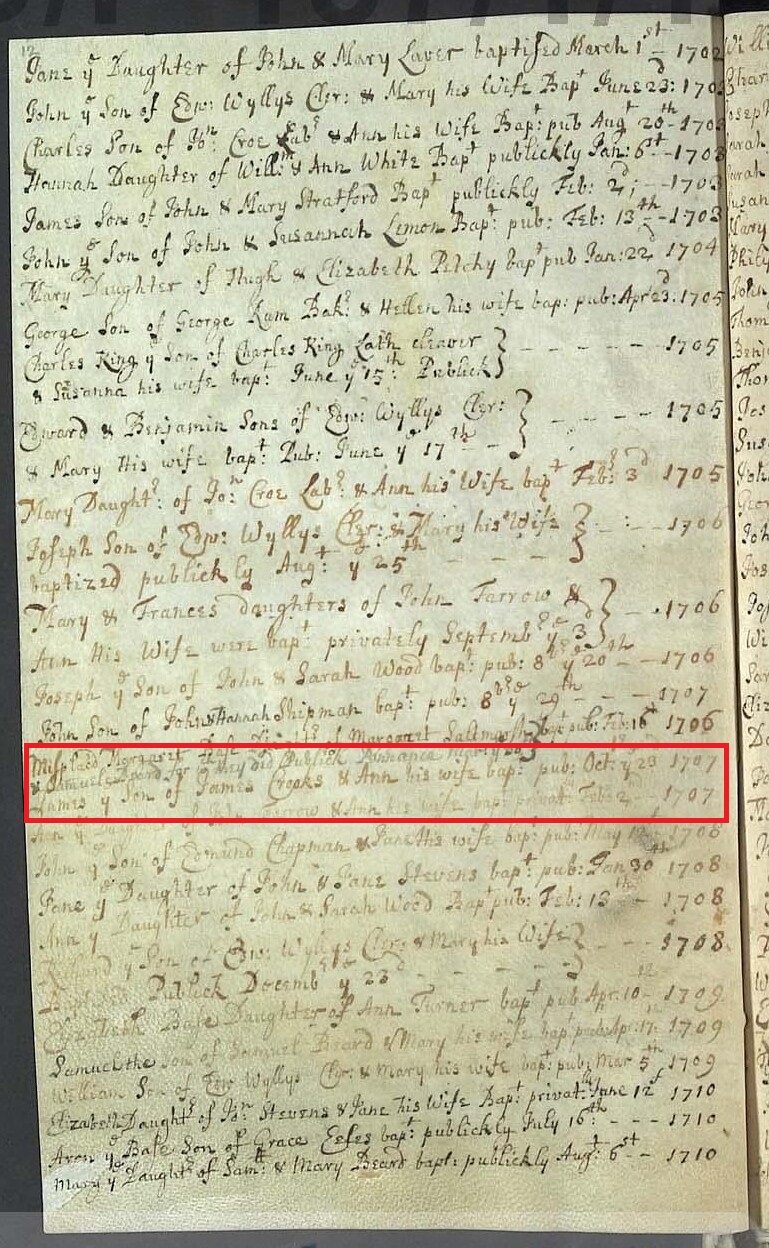 12
Jane yᵉ Daughter of John & Mary Laver baptised March 1ˢᵗ - 1702
John yᵉ Son of Edw: Wyllys Cler: & Mary his Wife Bapᵗ June 23ᵈ: 170
Charles Son of Joⁿ: Croe Labʳ & Ann his Wife Bapᵗ: pub Augᵗ 20ᵗʰ - 170
Hannah Daughter of Willᵐ: & Ann White Bapᵗ publickly Jan: 6ˢᵗ - 1703
James Son of John & Mary Stratford Bapᵗ publickly Feb: 2ᵈ; - - 1703
John yᵉ Son of John & Susannah Lemon Bapᵗ: pub: Feb: 13ᵗʰ - - 1703
Mary Daughter of Hugh & Elizabeth Petchy bapᵗ pub Jan: 22ᵈ 1704
George Son of George Kum Bakʳ: & Hellen his wife bap: pub: Apr 23ᵈ: 1705
Charles King yᵉ Son of Charles King Lath cleaver } - - - - - 1705
& Susanna his wife bapᵗ: June yᵉ 15ᵗʰ: Publick
Edward & Benjamin Sons of Edw: Wyllys Cler: } - - - - 1705
& Mary His wife bapᵗ: Pub: June yᵉ 17ᵗʰ - -
Mary Daughtʳ: of Joⁿ: Croe Labʳ: & Ann his Wife bapᵗ Febʳ: 3ᵈ 1705
Joseph Son of Edw: Wyllys Cler: & Mary his Wife } - : - - 1706
baptized publickly Augᵗ: yᵉ 25ᵗʰ - - - -
Mary & Frances daughters of John Farrow & } - - 1706
Ann His Wife were bapᵗ: privately Septembʳ yᵉ 3ᵈ
Joseph yᵉ Son of John & Sarah Wood bapᵗ: pub: 8ᵇᵉʳ yᵉ 20ᵗʰ - - 1706
John Son of John & Hannah Shipman bapᵗ: pub: 8ᵇᵉʳ yᵉ 29ᵗʰ - - 1707
Misplaced Margaret Base of Margaret bapᵗ pub: Feb: 16ᵗʰ 1706
& Samuel Beard for they did Publick Pennance
James yᵉ Son of James Crooks & Ann his wife bapᵗ: pub: Oct: yᵉ 23 1707
Ann yᵉ Daughter of John Farrow & Ann his wife bapᵗ privat: Feb: 2ᵈ - 1707
John yᵉ Son of Edmund Chapman & Jane His wife bapᵗ: pub: May 1708
Jane yᵉ Daughter of John & Jane Stevens bapᵗ: pub: Jan 30ᵗʰ 1708
Ann yᵉ Daughter of John & Sarah Wood Bapᵗ pub: Feb: 13ᵗʰ - 1708
Richard yᵉ Son of Edw: Wyllys Cler: & Mary his Wife } - - - 1708
Publick Decembʳ yᵉ 23ᵈ - - - -
Elizabeth Base Daughter of Ann Turner bapᵗ pub Apr: 10 - 1709
Samuel the Son of Samuel Beard & Mary his wife bapᵗ pub: Apr: 17 - 1709
William Son of Edw Wyllys Cler: & Mary his wife bapᵗ: pub: Mar 5ᵗʰ 1709
Elizabeth Daughtʳ of Joⁿ: Stevens & Jane his Wife Bapᵗ: privat: June 12 1710
Aron yᵉ Base Son of Grace Eeles bapᵗ: publickly July 16ᵗʰ - - - 1710
Mary yᵉ Daughtʳ of Samˡˡ: & Mary Beard bapᵗ: publickly Augᵗ: 6ˢᵗ - - 1710